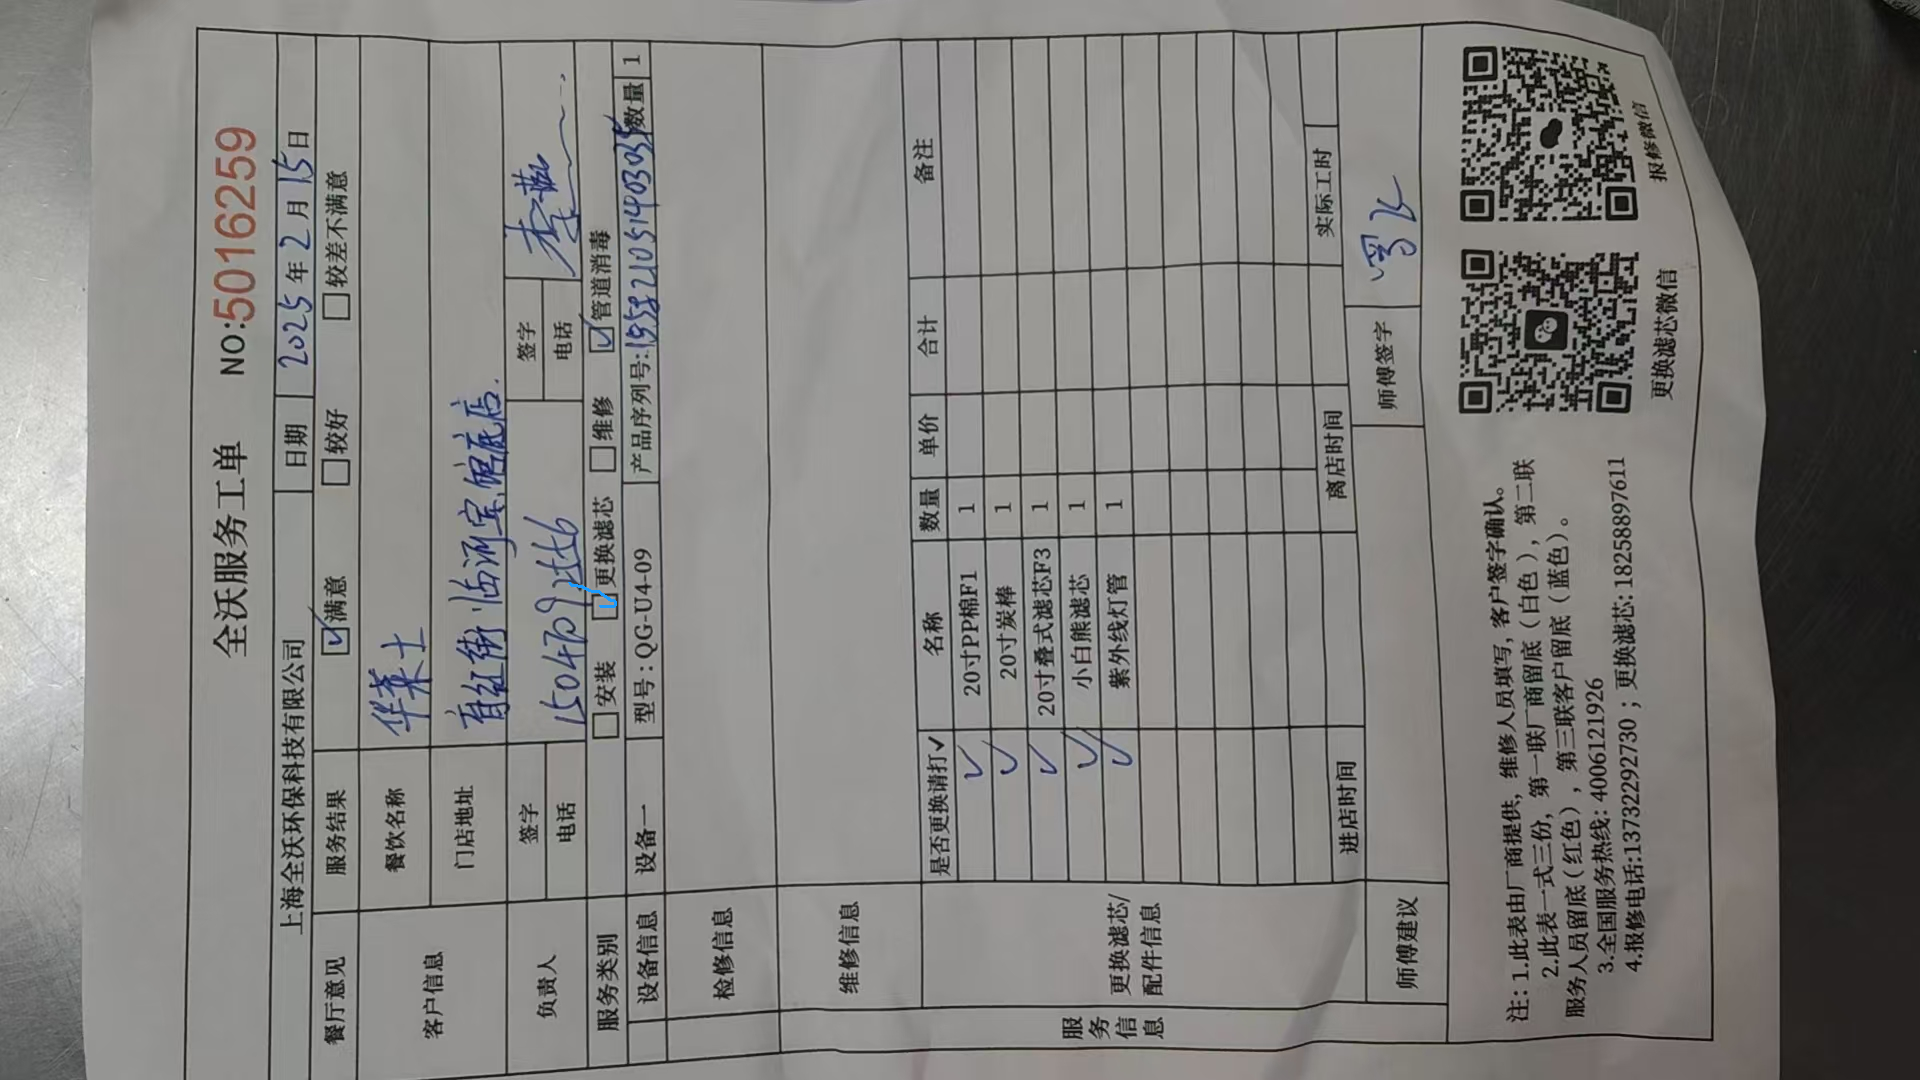 全沃服务工单 NO:5016259
上海全沃环保科技有限公司 日期 2025年2月15日
餐厅意见 服务结果 ☑满意 □较好 □较差不满意
客户信息 餐饮名称 华莱士
门店地址 临河宾馆底店
负责人 签字 签字
电话 电话
服务类别 □安装 ☑更换滤芯 □维修 ☑管道消毒
设备信息 设备一 型号:QG-U4-09 产品序列号: 数量 1
检修信息
维修信息
服务信息
更换滤芯/配件信息
是否更换请打✓ 名称 数量 单价 合计 备注
✓ 20寸PP棉F1 1
✓ 20寸炭棒 1
✓ 20寸叠式滤芯F3 1
✓ 小白熊滤芯 1
✓ 紫外线灯管 1
进店时间 离店时间 实际工时
师傅建议 师傅签字
注:1.此表由厂商提供,维修人员填写,客户签字确认。
2.此表一式三份,第一联厂商留底(白色),第二联
服务人员留底(红色),第三联客户留底(蓝色)。
3.全国服务热线:4006121926
4.报修电话:13732292730;更换滤芯:18258897611
更换滤芯微信
报修微信